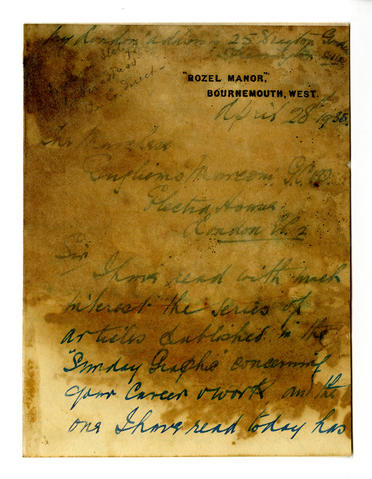 My London address, 25
"ROZEL MANOR,"
BOURNEMOUTH, WEST.
April 28th 1935.
Guglielmo Marconi
Electra House
London W.2
Sir
I have read with much
interest the series of
articles published in the
"Sunday Graphic" concerning
your Career & work and the
one I have read today has